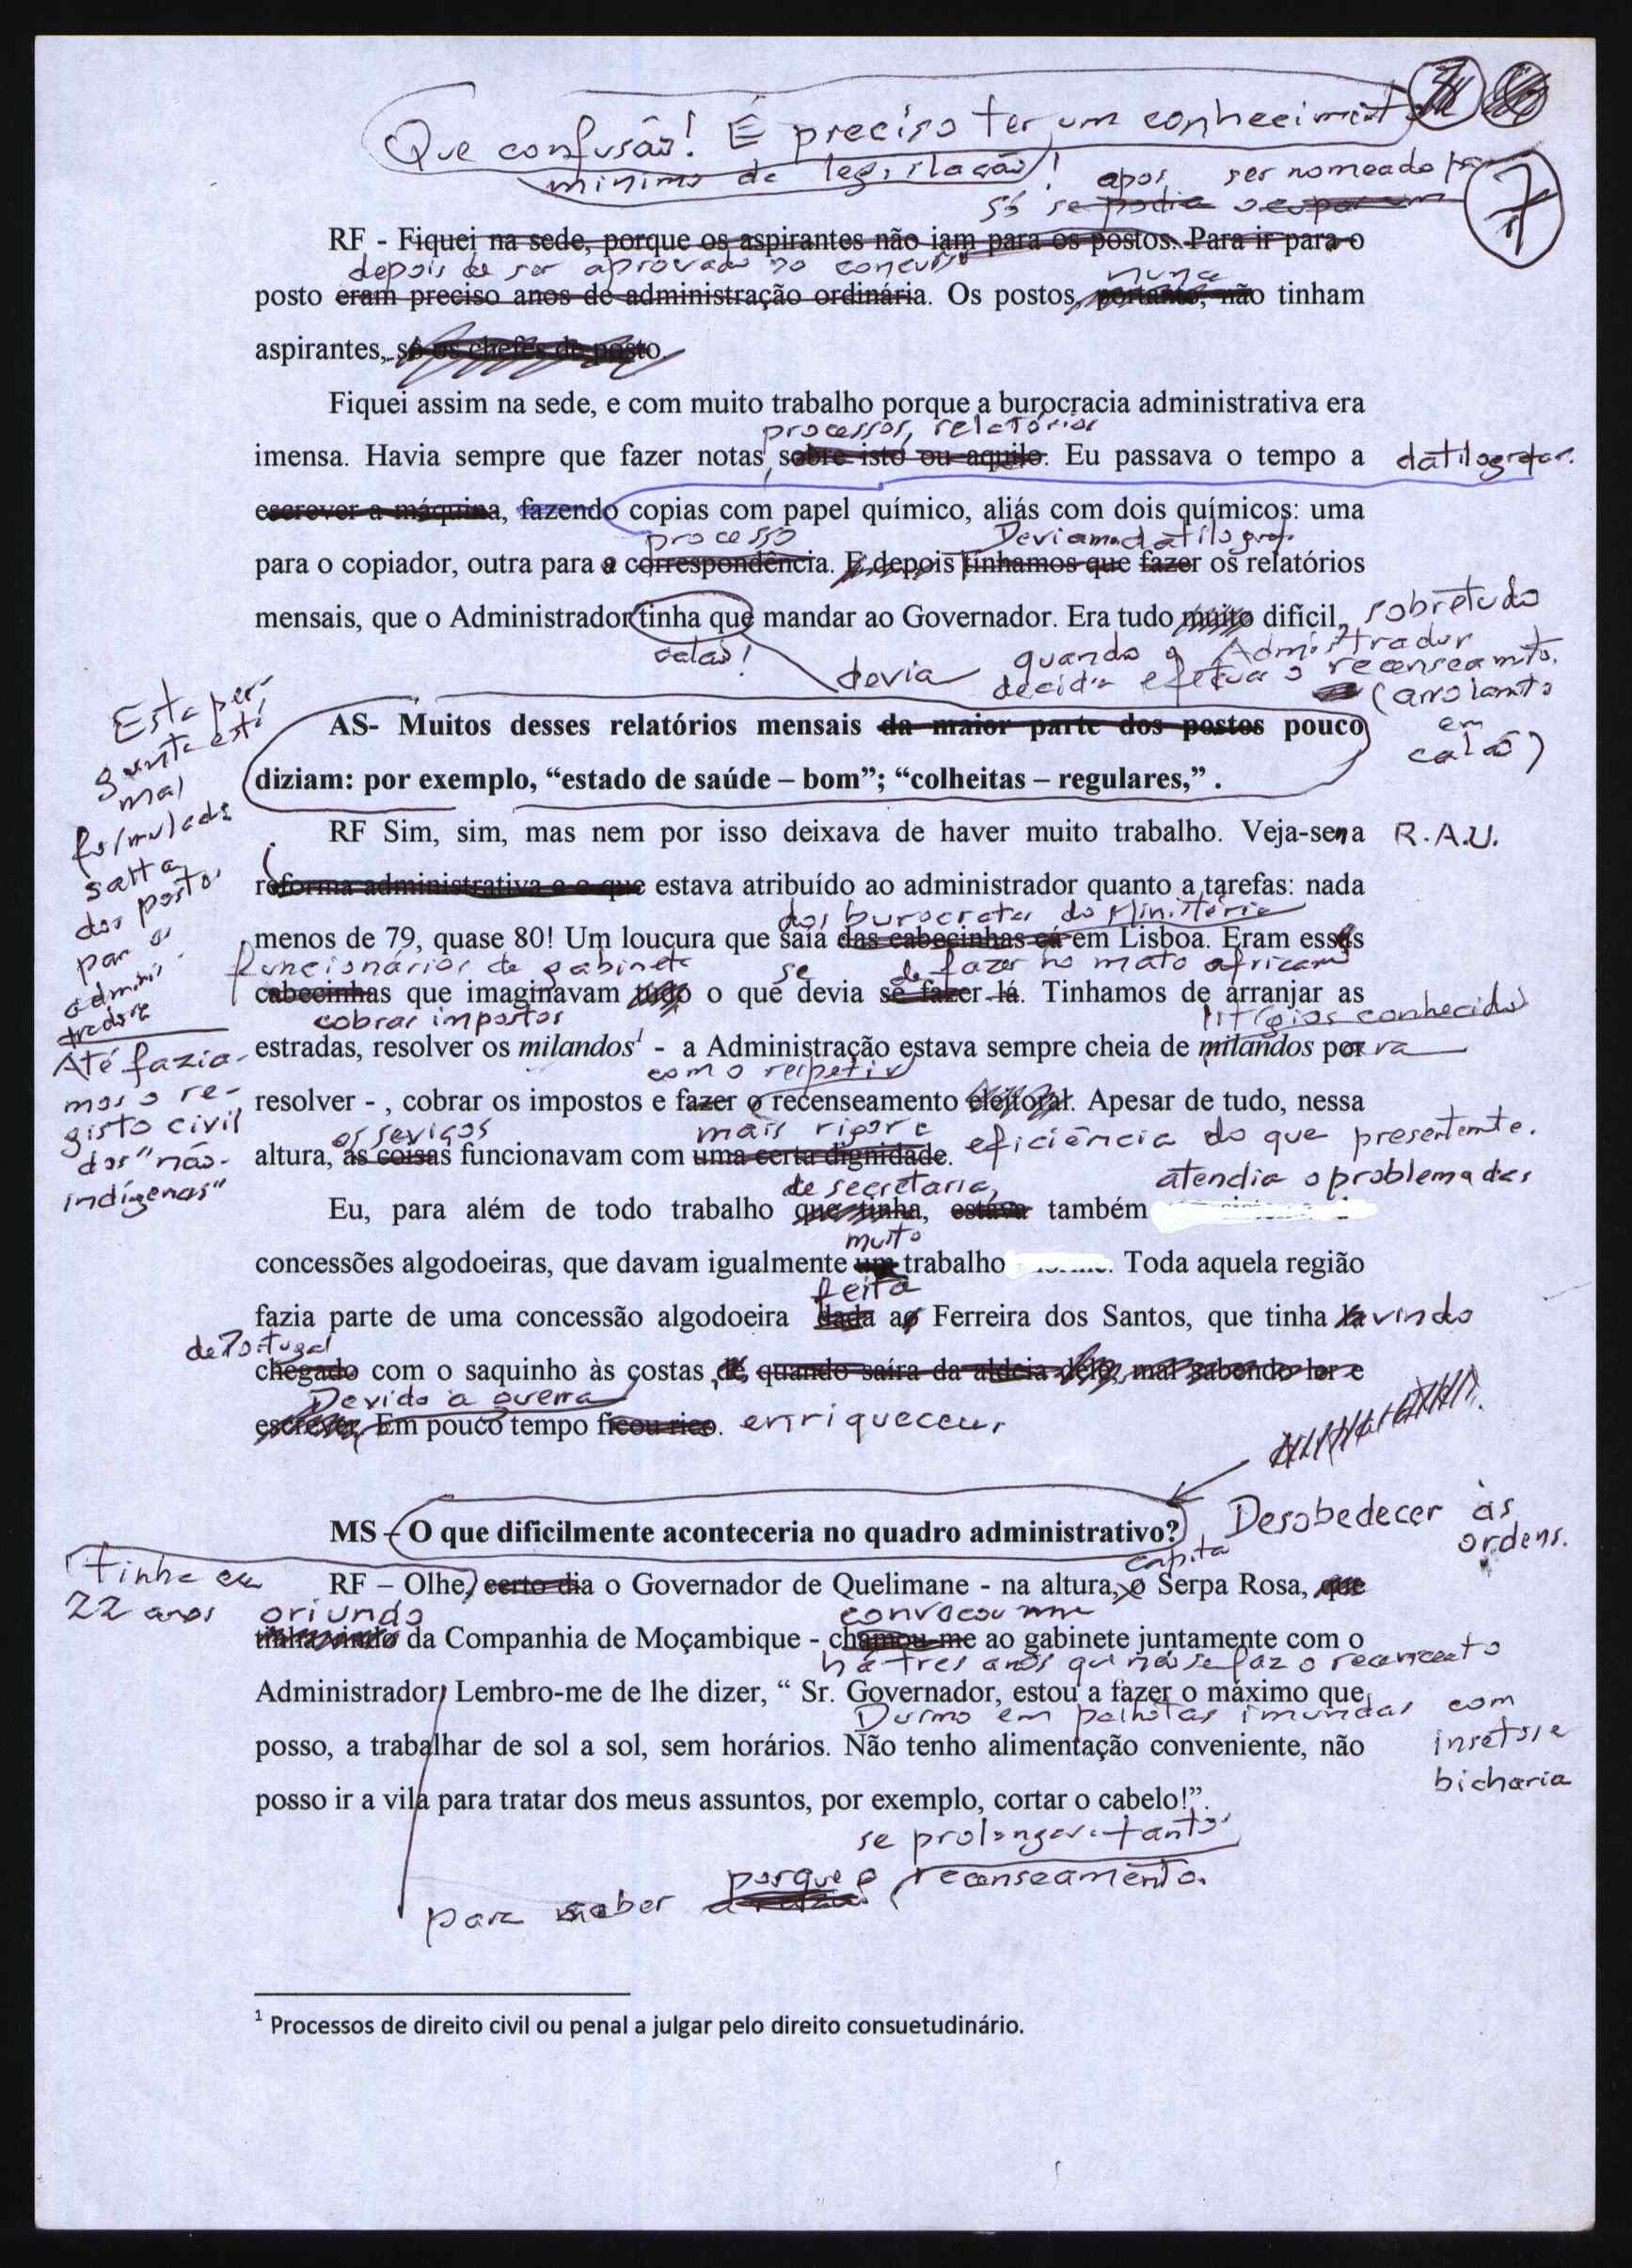 Que confusão! É preciso ter um conheciment
minimo de legislação!
7
apos ser nomeado
só se podia ocupar um
RF - Fiquei na sede, porque os aspirantes não iam para os postos. Para ir para o
depois de ser aprovado no concurso
nunca
posto eram preciso anos de administração ordinária. Os postos, portanto, não tinham
aspirantes, só os chefes de posto.
Fiquei assim na sede, e com muito trabalho porque a burocracia administrativa era
processos, relatórios
imensa. Havia sempre que fazer notas, sobre isto ou aquilo. Eu passava o tempo a datilografar.
escrever a máquina, fazendo copias com papel químico, aliás com dois químicos: uma
processo Deviamos datilograf.
para o copiador, outra para a correspondência. E depois tínhamos que fazer os relatórios
mensais, que o Administrador tinha que mandar ao Governador. Era tudo muito difícil, sobretudo
calão! devia quando o Administrador
decidia efetuar o recenseamto.
(arrolamto
em
calão)
Esta per-
gunta está
mal
formulada
salta
dos postos
para os
adminis-
tradores
AS- Muitos desses relatórios mensais da maior parte dos postos pouco
diziam: por exemplo, “estado de saúde – bom”; “colheitas – regulares,” .
RF Sim, sim, mas nem por isso deixava de haver muito trabalho. Veja-se na R.A.U.
reforma administrativa e o que estava atribuído ao administrador quanto a tarefas: nada
dos burocratas do Ministério
menos de 79, quase 80! Um loucura que saía das cabecinhas cá em Lisboa. Eram esses
funcionários de gabinete se de fazer no mato africano
cabecinhas que imaginavam tudo o que devia se fazer lá. Tinhamos de arranjar as
cobrar impostos litígios conhecidos
estradas, resolver os milandos¹ - a Administração estava sempre cheia de milandos para
Até fazia-
mos o re-
gisto civil
dos "não-
indígenas"
como respetivo
resolver - , cobrar os impostos e fazer o recenseamento eleitoral. Apesar de tudo, nessa
os seviços mais rigor e
altura, as coisas funcionavam com uma certa dignidade. eficiência do que presentemte.
de secretaria, atendia o problema das
Eu, para além de todo trabalho que tinha, estava também
muito
concessões algodoeiras, que davam igualmente um trabalho Toda aquela região
feita
fazia parte de uma concessão algodoeira dada ao Ferreira dos Santos, que tinha vindo
de Portugal
chegado com o saquinho às costas, de quando saíra da aldeia dele, mal sabendo ler e
Devido à guerra
escrever. Em pouco tempo ficou rico. enriqueceu.
MS – O que dificilmente aconteceria no quadro administrativo? Desobedecer às
ordens.
tinha eu
22 anos
capita
RF – Olhe, certo dia o Governador de Quelimane - na altura, o Serpa Rosa, que
oriundo convocou me
tinha vindo da Companhia de Moçambique - chamou-me ao gabinete juntamente com o
há tres anos que não se faz o
Administrador. Lembro-me de lhe dizer, “ Sr. Governador, estou a fazer o máximo que
Durmo em palhotas imundas com
insetos e
bicharia
posso, a trabalhar de sol a sol, sem horários. Não tenho alimentação conveniente, não
posso ir a vila para tratar dos meus assuntos, por exemplo, cortar o cabelo!”.
se prolongava tanto
para saber porque o recenseamento.
¹ Processos de direito civil ou penal a julgar pelo direito consuetudinário.